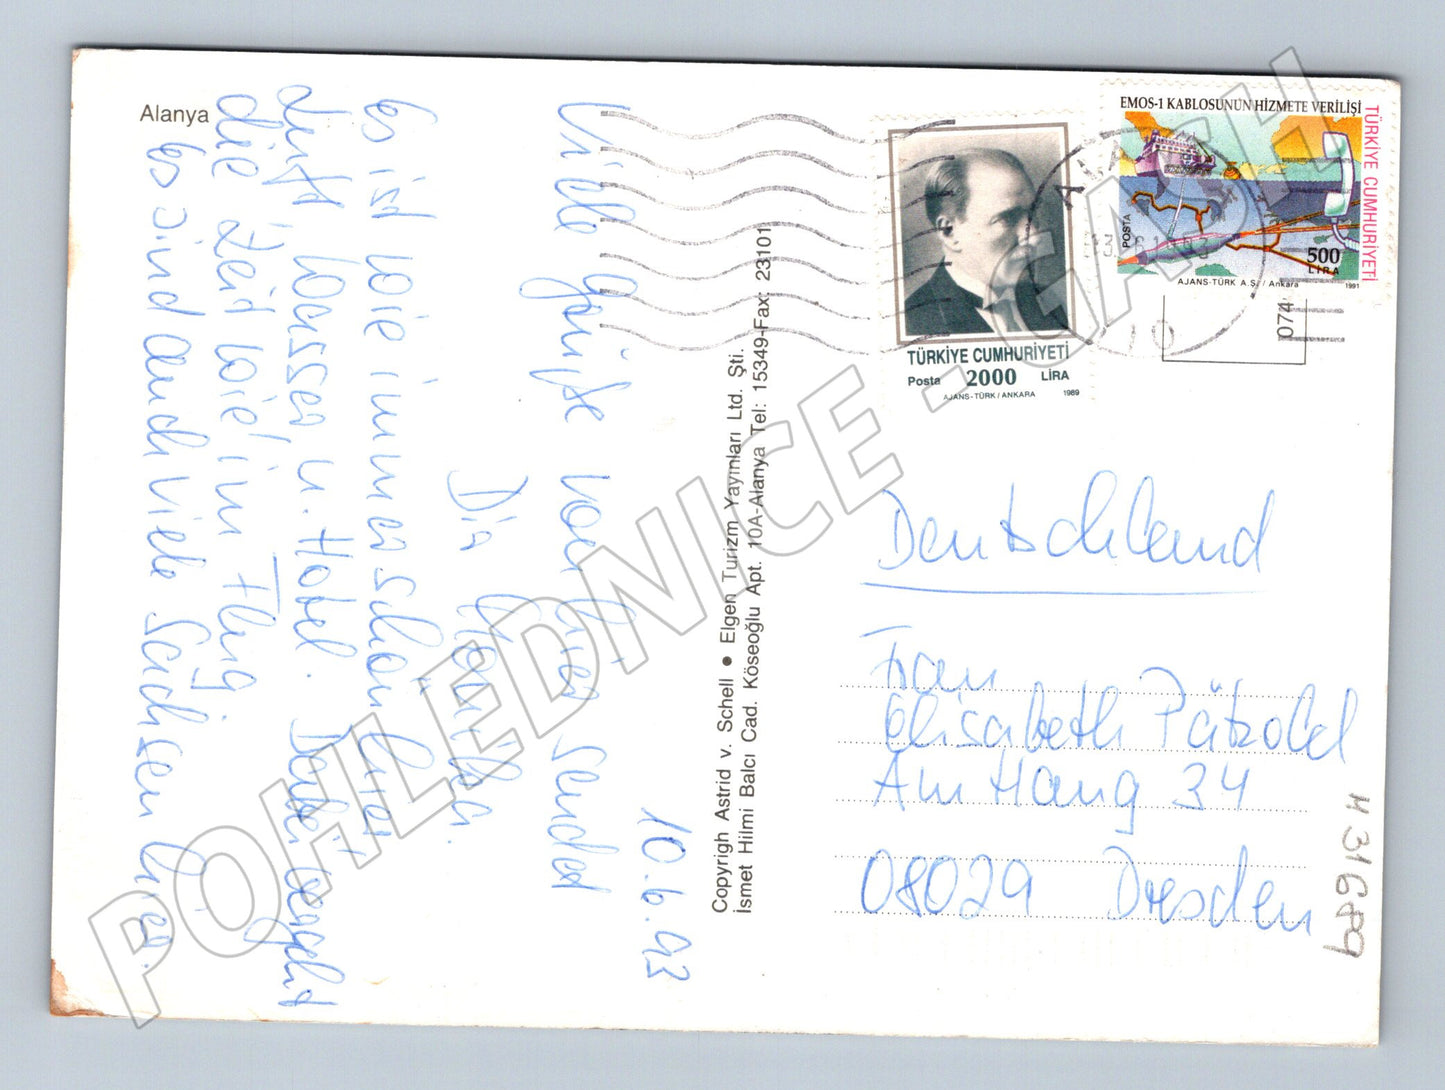 Alanya
10.6.93
Viele Grüße von hier sendet
Dir Monika.
Es ist wie immer schön hier
Luft, Wasser u. Hotel. Dabei vergeht
die Zeit wie im Flug
Es sind auch viele Sachsen hier.
Copyrigh Astrid v. Schell ● Elgen Turizm Yayınları Ltd. Şti.
İsmet Hilmi Balcı Cad. Köseoğlu Apt. 10A-Alanya Tel: 15349-Fax: 23101
TÜRKİYE CUMHURİYETİ
Posta 2000 LİRA
AJANS-TÜRK / ANKARA 1989
EMOS-1 KABLOSUNUN HİZMETE VERİLİŞİ
TÜRKİYE CUMHURİYETİ
POSTA
500
LİRA
AJANS-TÜRK A.Ş. / Ankara 1991
074
Deutschland
Frau
Elisabeth Pätzold
Am Hang 34
08029 Dresden
H 31689
POHLEDNICE - CASH